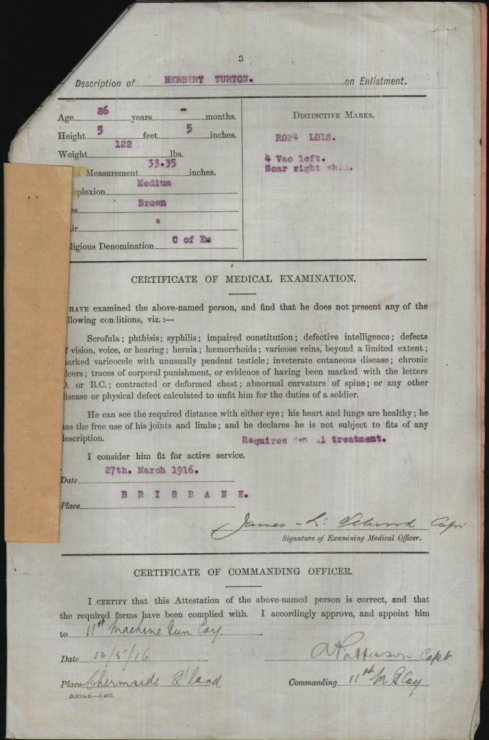 3
Description of HERBERT TURTON. on Enlistment.
Age 26 years - months.
Height 5 feet 5 inches.
Weight 122 lbs.
Measurement 33.35 inches.
plexion Medium
es Brown
ir "
ligious Denomination C of E
DISTINCTIVE MARKS.
4 Vac left.
Scar right
CERTIFICATE OF MEDICAL EXAMINATION.
HAVE examined the above-named person, and find that he does not present any of the
llowing conditions, viz. :—
Scrofula; phthisis; syphilis; impaired constitution; defective intelligence; defects
f vision, voice, or hearing; hernia; hæmorrhoids; varicose veins, beyond a limited extent;
arked varicocele with unusually pendent testicle; inveterate cutaneous disease; chronic
lcers; traces of corporal punishment, or evidence of having been marked with the letters
D. or B.C.; contracted or deformed chest; abnormal curvature of spine; or any other
isease or physical defect calculated to unfit him for the duties of a soldier.
He can see the required distance with either eye; his heart and lungs are healthy; he
as the free use of his joints and limbs; and he declares he is not subject to fits of any
escription. Requires treatment.
I consider him fit for active service.
Date 27th. March 1916.
Place BRISBANE.
James Capt
Signature of Examining Medical Officer.
CERTIFICATE OF COMMANDING OFFICER.
I CERTIFY that this Attestation of the above-named person is correct, and that
the required forms have been complied with. I accordingly approve, and appoint him
to 11th Machine Gun Coy
Date /5/16 Capt
Place Chermside Q'land Commanding 11th M G Coy